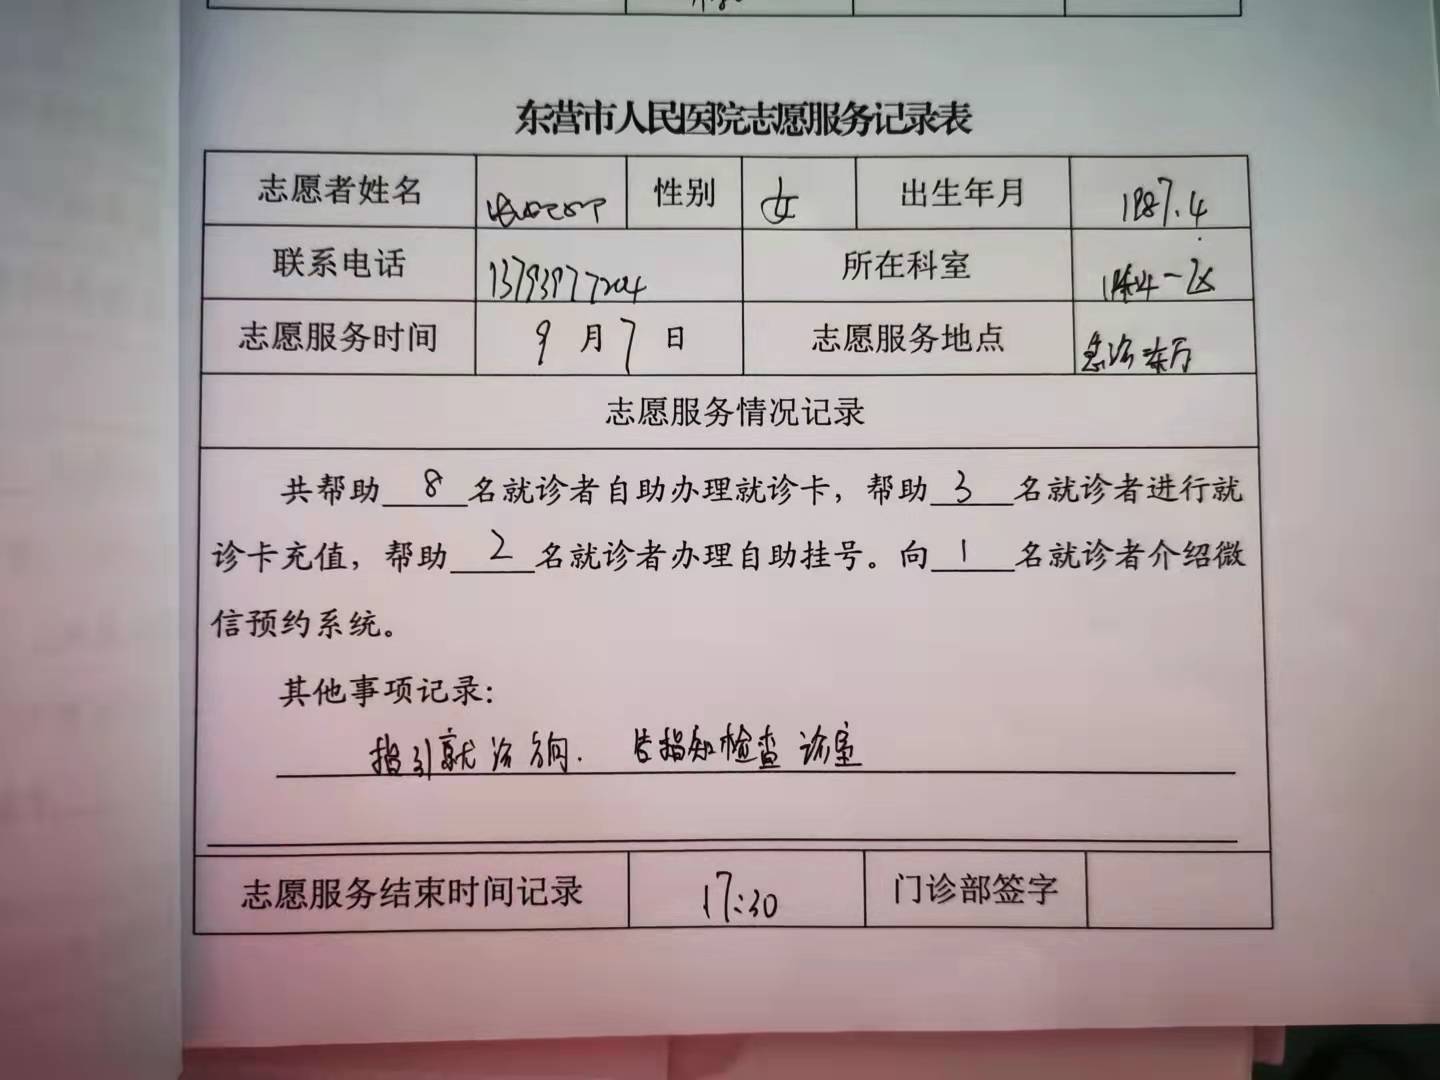 东营市人民医院志愿服务记录表
志愿者姓名 性别 女 出生年月 1987.4
联系电话 13793977204 所在科室
志愿服务时间 9月7日 志愿服务地点 急诊东厅
志愿服务情况记录
共帮助 8 名就诊者自助办理就诊卡，帮助 3 名就诊者进行就
诊卡充值，帮助 2 名就诊者办理自助挂号。向 1 名就诊者介绍微
信预约系统。
其他事项记录：
指引就诊方向. 告指知检查诊室
志愿服务结束时间记录 17:30 门诊部签字